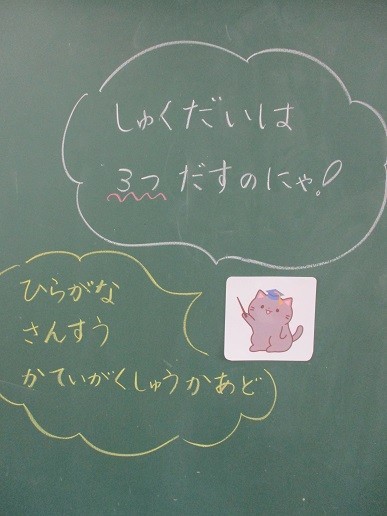 しゅくだいは
3つだすのにゃ!
ひらがな
さんすう
かていがくしゅうかあど